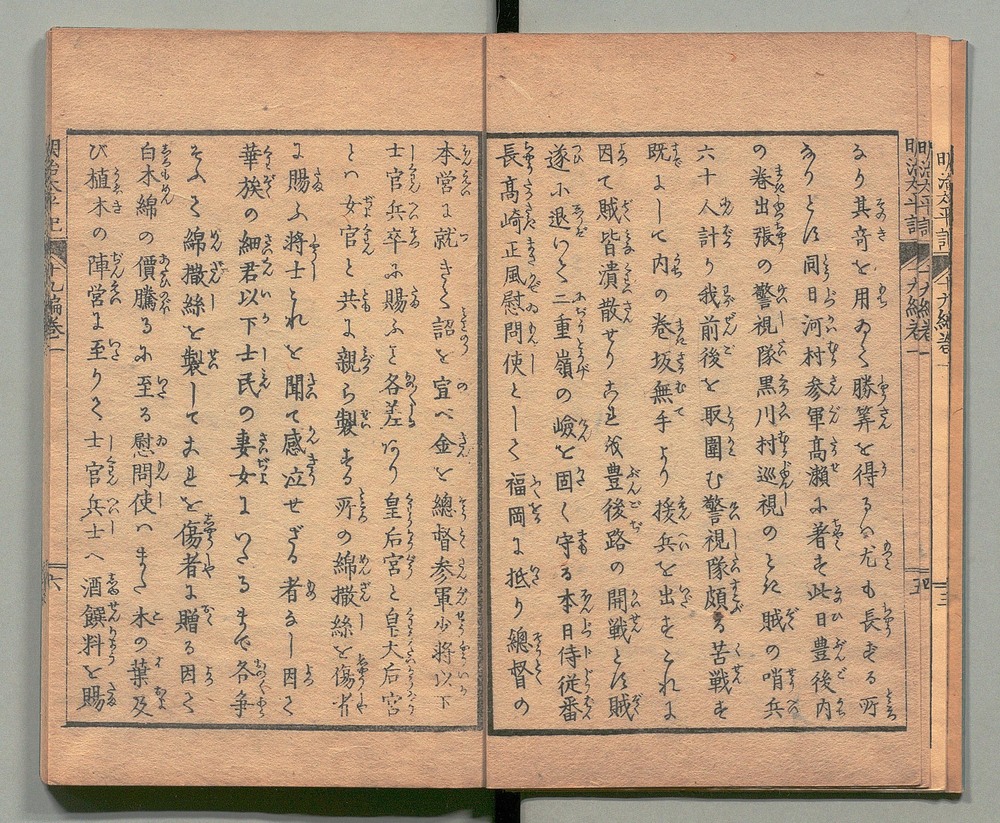 なり其奇を用ゐて勝筭を得るハ尤も長ずる所
ありとぞ同日河村参軍高瀬に著す此日豊後内
の巻出張の警視隊黒川村巡視のとき賊の哨兵
六十人計り我前後を取圍む警視隊頗る苦戦す
既にして内の巻坂無手より援兵を出すこれに
因て賊皆潰散せりこれを豊後路の開戦とす賊
遂に退いて二重嶺の嶮を固く守る本日侍従番
長高崎正風慰問使として福岡に抵り總督の
本営に就きて詔を宣べ金を總督参軍少将以下
士官兵卒に賜ふと各差あり皇后宮と皇太后宮
とハ女官と共に親ら製する所の綿撒絲を傷者
に賜ふ将士これを聞て感泣せざる者なし因て
華族の細君以下士民の妻女にいたるまで各争
そふて綿撒絲を製してこれを傷者に贈る因て
白木綿の價騰るに至る慰問使ハまた木の葉及
び植木の陣営に至りて士官兵士へ酒饌料を賜
明治太平記
十九編巻一
五
六